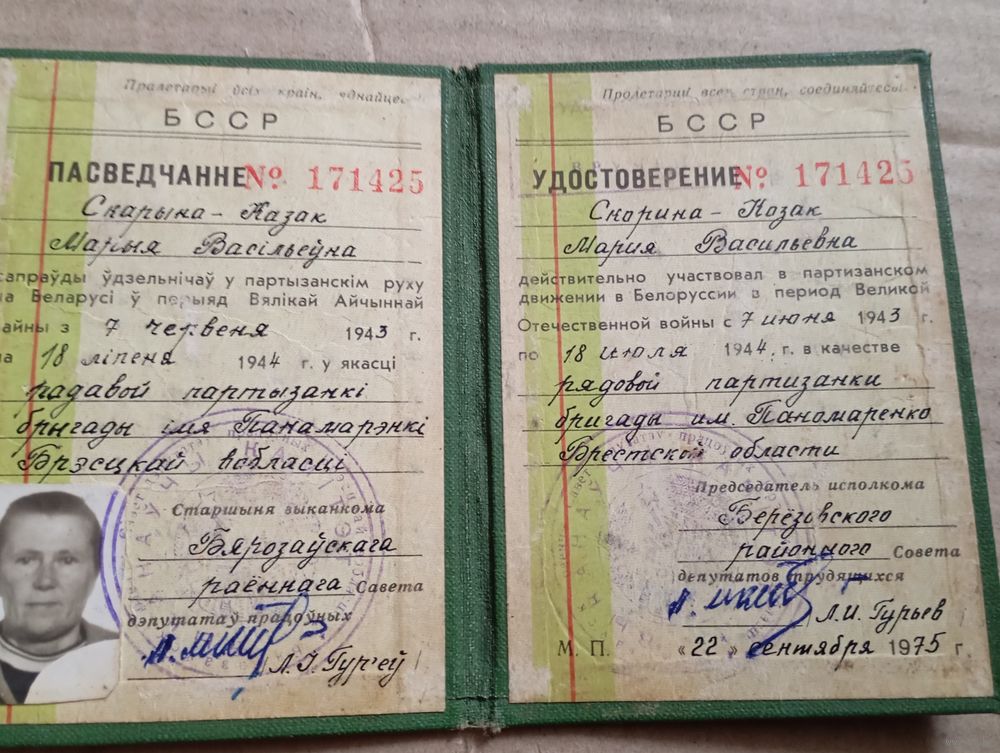 Пралетарыі ўсіх краін, еднайце
БССР
ПАСВЕДЧАННЕ № 171425
Скарына-Казак
Марыя Васільеўна
сапраўды ўдзельнічаў у партызанскім руху
на Беларусі ў перыяд Вялікай Айчыннай
вайны з 7 чэрвеня 1943 г.
па 18 ліпеня 1944 г. у якасці
радавой партызанкі
брыгады імя Панамарэнкі
Брэсцкай вобласці
Старшыня выканкома
Бярозаўскага
раённага Савета
дэпутатаў працоўных
Л.І. Гур'еў
Пролетарии всех стран, соединяйтесь!
БССР
УДОСТОВЕРЕНИЕ № 171425
Скорина-Козак
Мария Васильевна
действительно участвовал в партизанском
движении в Белоруссии в период Великой
Отечественной войны с 7 июня 1943 г.
по 18 июля 1944 г. в качестве
рядовой партизанки
бригады им. Пономаренко
Брестской области
Председатель исполкома
Берёзовского
районного Совета
депутатов трудящихся
Л.И. Гурьев
М. П. «22» сентября 1975 г.